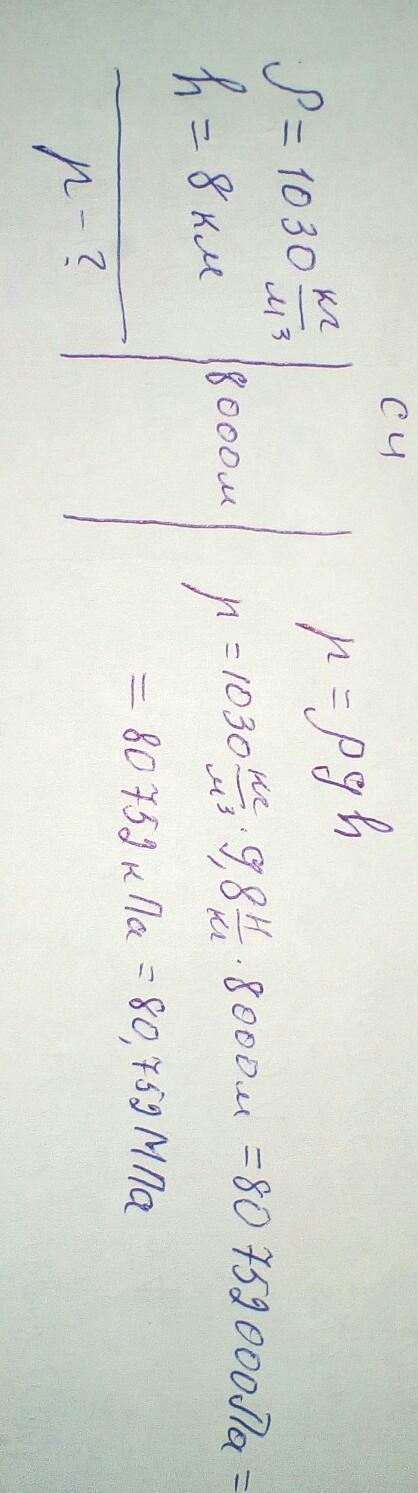 ρ = 1030 кг/м³
h = 8 км
p - ?
СИ
8000м
p = ρgh
p = 1030 кг/м³ · 9,8 Н/кг · 8000м = 80752000Па =
= 80752кПа = 80,752МПа